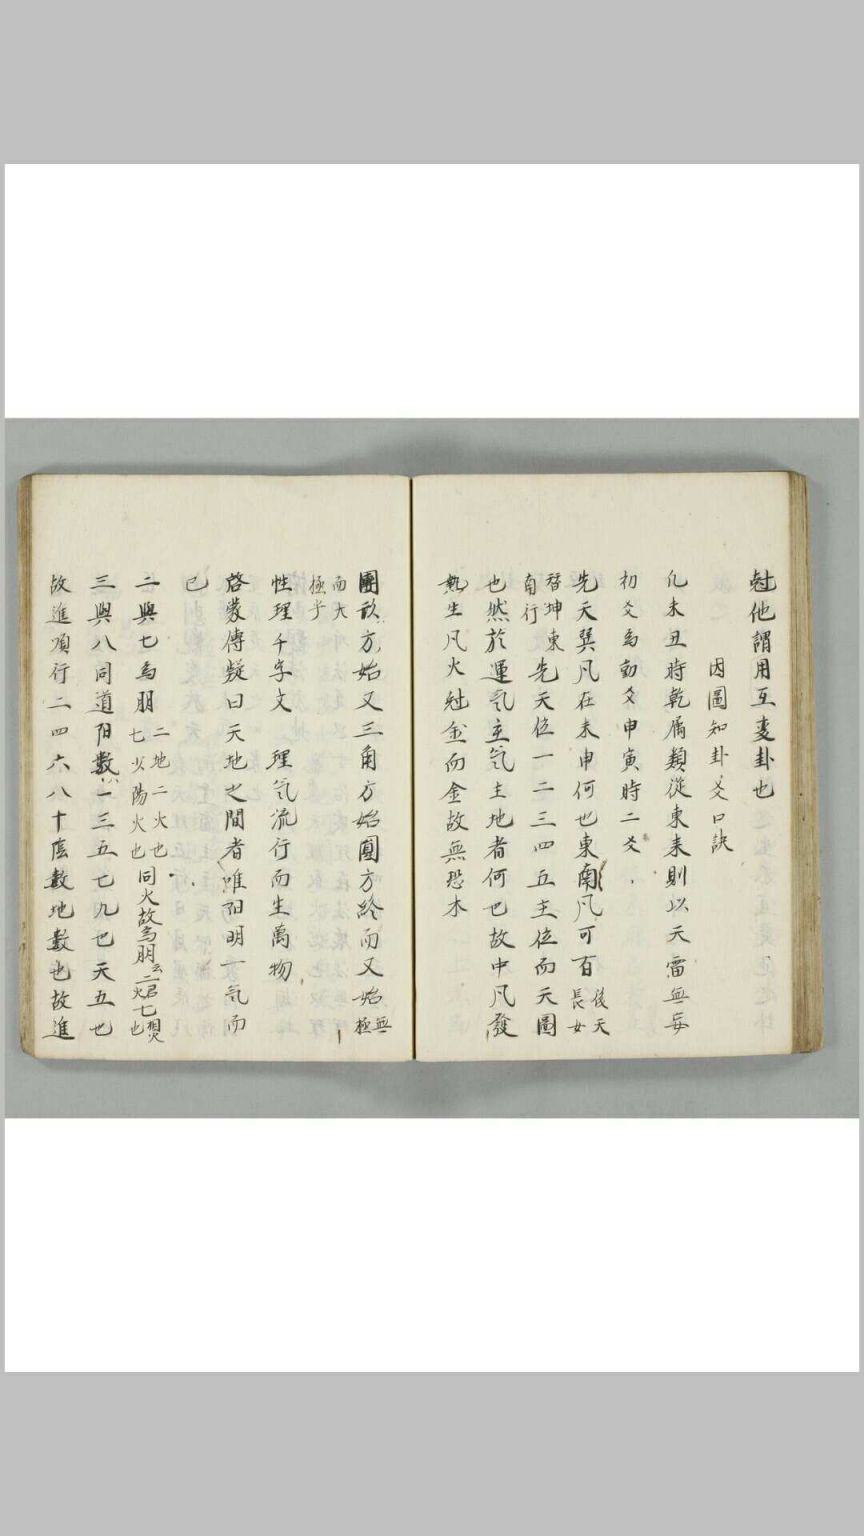 尅他謂用互変卦也
因圖知卦爻口訣
凡未丑時乾屬類從東来則以天雷無妄
初爻為動爻申寅時二爻
先天巽凡在未申何也東南凡可百後天長女
替坤東自行先天位一二三四五主位而天圖
也然於運气主气主地者何也故中凡發
熱生凡火尅金而金故無恐木
團次方始又三角方始團方終而又始無極
而大極乎
性理千字文 理気流行而生萬物
啓蒙傳疑曰天地之間者唯阳明一気而
已
二與七為朋二地二火也七少陽火也同火故為朋云二君火七相火也
三與八同道阳數一三五七九也天五也
故進順行二四六八十陰數地數也故進